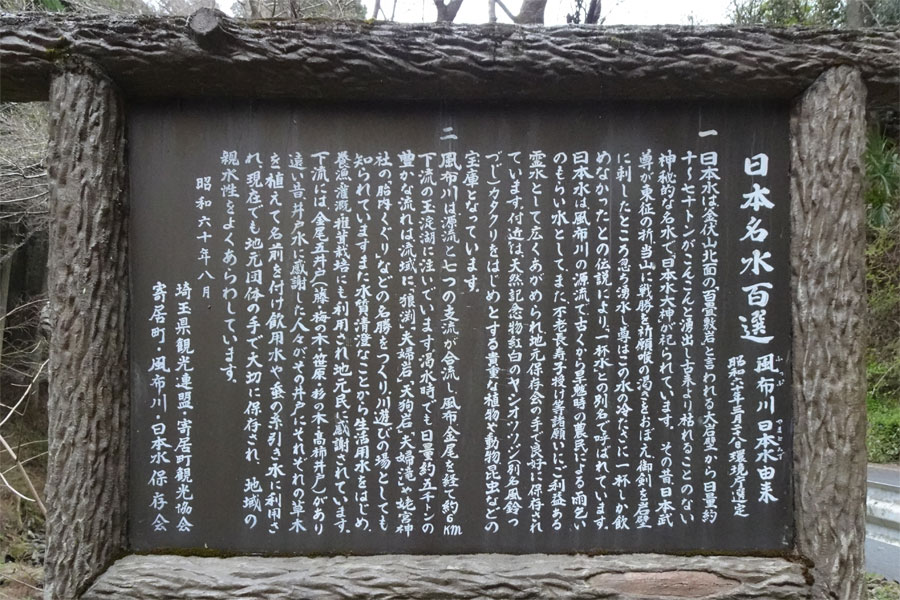 日本名水百選 風布川 日本水由来
ふっぷがわ やまとみず
昭和六十年三月二八日環境庁選定
一 日本水は釜伏山北面の「百畳敷岩」と言われる大岩壁から日量約
六十~七十トンがこんこんと湧出し古来より枯れることのない
神秘的な名水で日本大神が祀られています。その昔日本武
尊が東征の折当山に戦勝を祈願喉の渇きをおぼえ御剣を岩壁
に刺したところ忽ち湧水し尊はこの水の冷たさに一杯しか飲
めなかったとの伝説により、一杯水との別名で呼ばれています。
日本水は風布川の源流で古くから旱魃時の農民による雨乞い
のもらい水として、また、不老長寿子授け等諸願いにご利益ある
霊水として広くあがめられ地元保存会の手で良好に保存され
ています。付近は、天然記念物紅白のヤシオツツジ(別名風鈴つ
つじ)、カタクリをはじめとする貴重な植物や動物昆虫などの
宝庫となっています。
二 風布川は源流と七つの支流が合流し風布・金尾を経て約6km
下流の玉淀湖に注いでいます渇水時でも日量約五千トンの
豊かな流れは流域に「狼渕」「夫婦岩」「天狗岩」「夫婦滝」「姥宮神
社の胎内くぐり」などの名勝をつくり川遊びの場としても
知られていますまた水質清澄なことから生活用水をはじめ、
養漁灌漑椎茸栽培にも利用され地元民に感謝されています。
下流には、金尾五井戸(藤・梅の木・笹原・杉の本・高柿井戸)があり
遠い昔井戸水に感謝した人々がその井戸にそれぞれの草木
を植えて名前を付け飲用水や蚕の糸引き水に利用さ
れ、現在でも地元団体の手で大切に保存され、地域の
親水性をよくあらわしています。
昭和六十年八月
埼玉県観光連盟・寄居町観光協会
寄居町・風布川日本水保存会